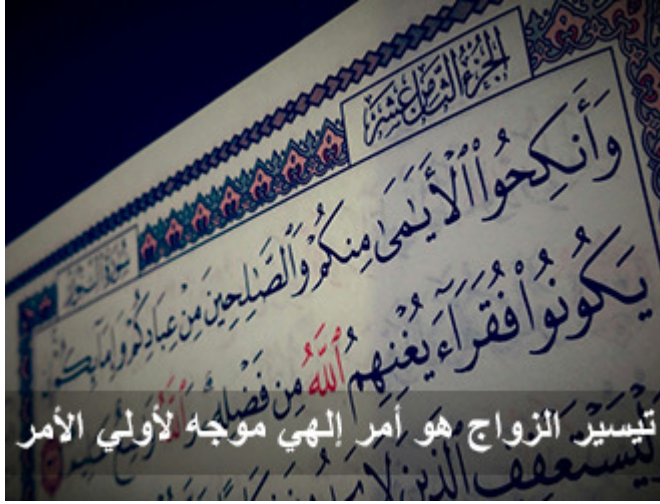 الجزء الثامن عشر
سورة النور
وَأَنكِحُوا۟ ٱلْأَيَـٰمَىٰ مِنكُمْ وَٱلصَّـٰلِحِينَ مِنْ عِبَادِكُمْ وَإِمَآئِكُمْ
يَكُونُوا۟ فُقَرَآءَ يُغْنِهِمُ ٱللَّهُ مِن فَضْلِهِۦ وَٱللَّهُ وَٰسِعٌ عَلِيمٌ
تيسير الزواج هو أمر إلهي موجه لأولي الأمر
وَلْيَسْتَعْفِفِ ٱلَّذِينَ لَا